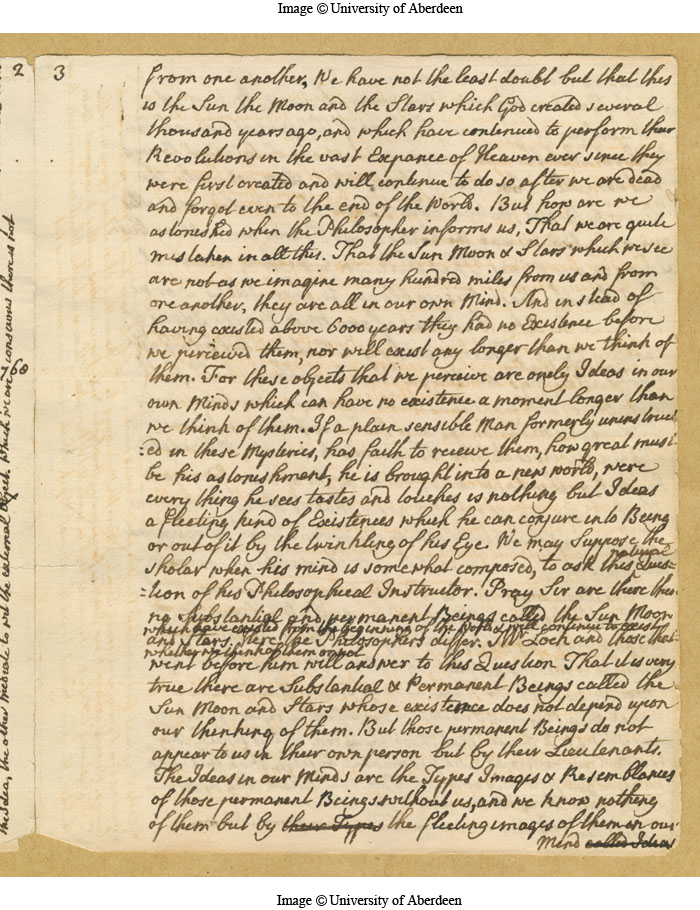 Image © University of Aberdeen
2
3
from one another, We have not the least doubt but that this
is the Sun the Moon and the Stars which God created several
thousand years ago, and which have continued to perform their
Revolutions in the vast Expance of Heaven ever since they
were first created and will continue to do so after we are dead
and forgot even to the end of the World. But how are we
astonished when the Philosopher informs us, That we are quite
mistaken in all this. That the Sun Moon & Stars which we see
are not as we imagine many hundred miles from us and from
one another, they are all in our own Mind. And in stead of
having existed above 6000 years they had no Existence before
we perceived them, nor will exist any longer than we think of
them. For these objects that we perceive are onely Ideas in our
own Minds which can have no existence a moment longer than
we think of them. If a plain sensible Man formerly uninstruct
=ed in these Mysteries, has faith to receive them, how great must
be his astonishment, he is brought into a new world, were
every thing he sees tastes and touches is nothing but Ideas
a fleeting kind of Existences which he can conjure into Being
or out of it by the twinkling of his Eye. We may suppose the
natural
sholar when his mind is somewhat composed, to ask this Ques=
=tion of his Philosophical Instructor. Pray Sir are there then
no Substantial and permanent Beings called the Sun Moon
which have existed from the beginning of the World & will continue to exist
and Stars, Here the Philosophers differ. Mr Lock and those that
whether we think of them or not
went before him will answer to this Question That it is very
true there are Substantial & Permanent Beings called the
Sun Moon and Stars whose existence does not depend upon
our thinking of them. But those permanent Beings do not
appear to us in their own person but by their Lieutenants.
The Ideas in our Minds are the Types Images & Resemblances
of those permanent Beings without us, and we know nothing
of them but by their Types the fleeting images of them in our
Mind called Ideas
the Idea, the other mediate to wit the external object. which we are conscious there is not
Image © University of Aberdeen